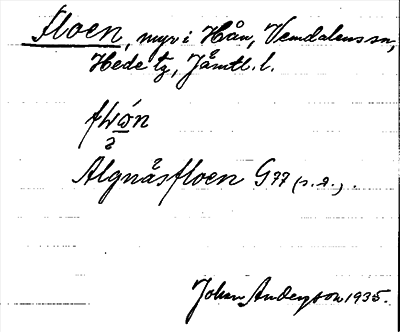 Floen, myr i Hån, Vemdalens sn,
Hede tg, Jämtl. l.
Algnäsfloen G77 (s. d.).
Johan Anderson 1935.